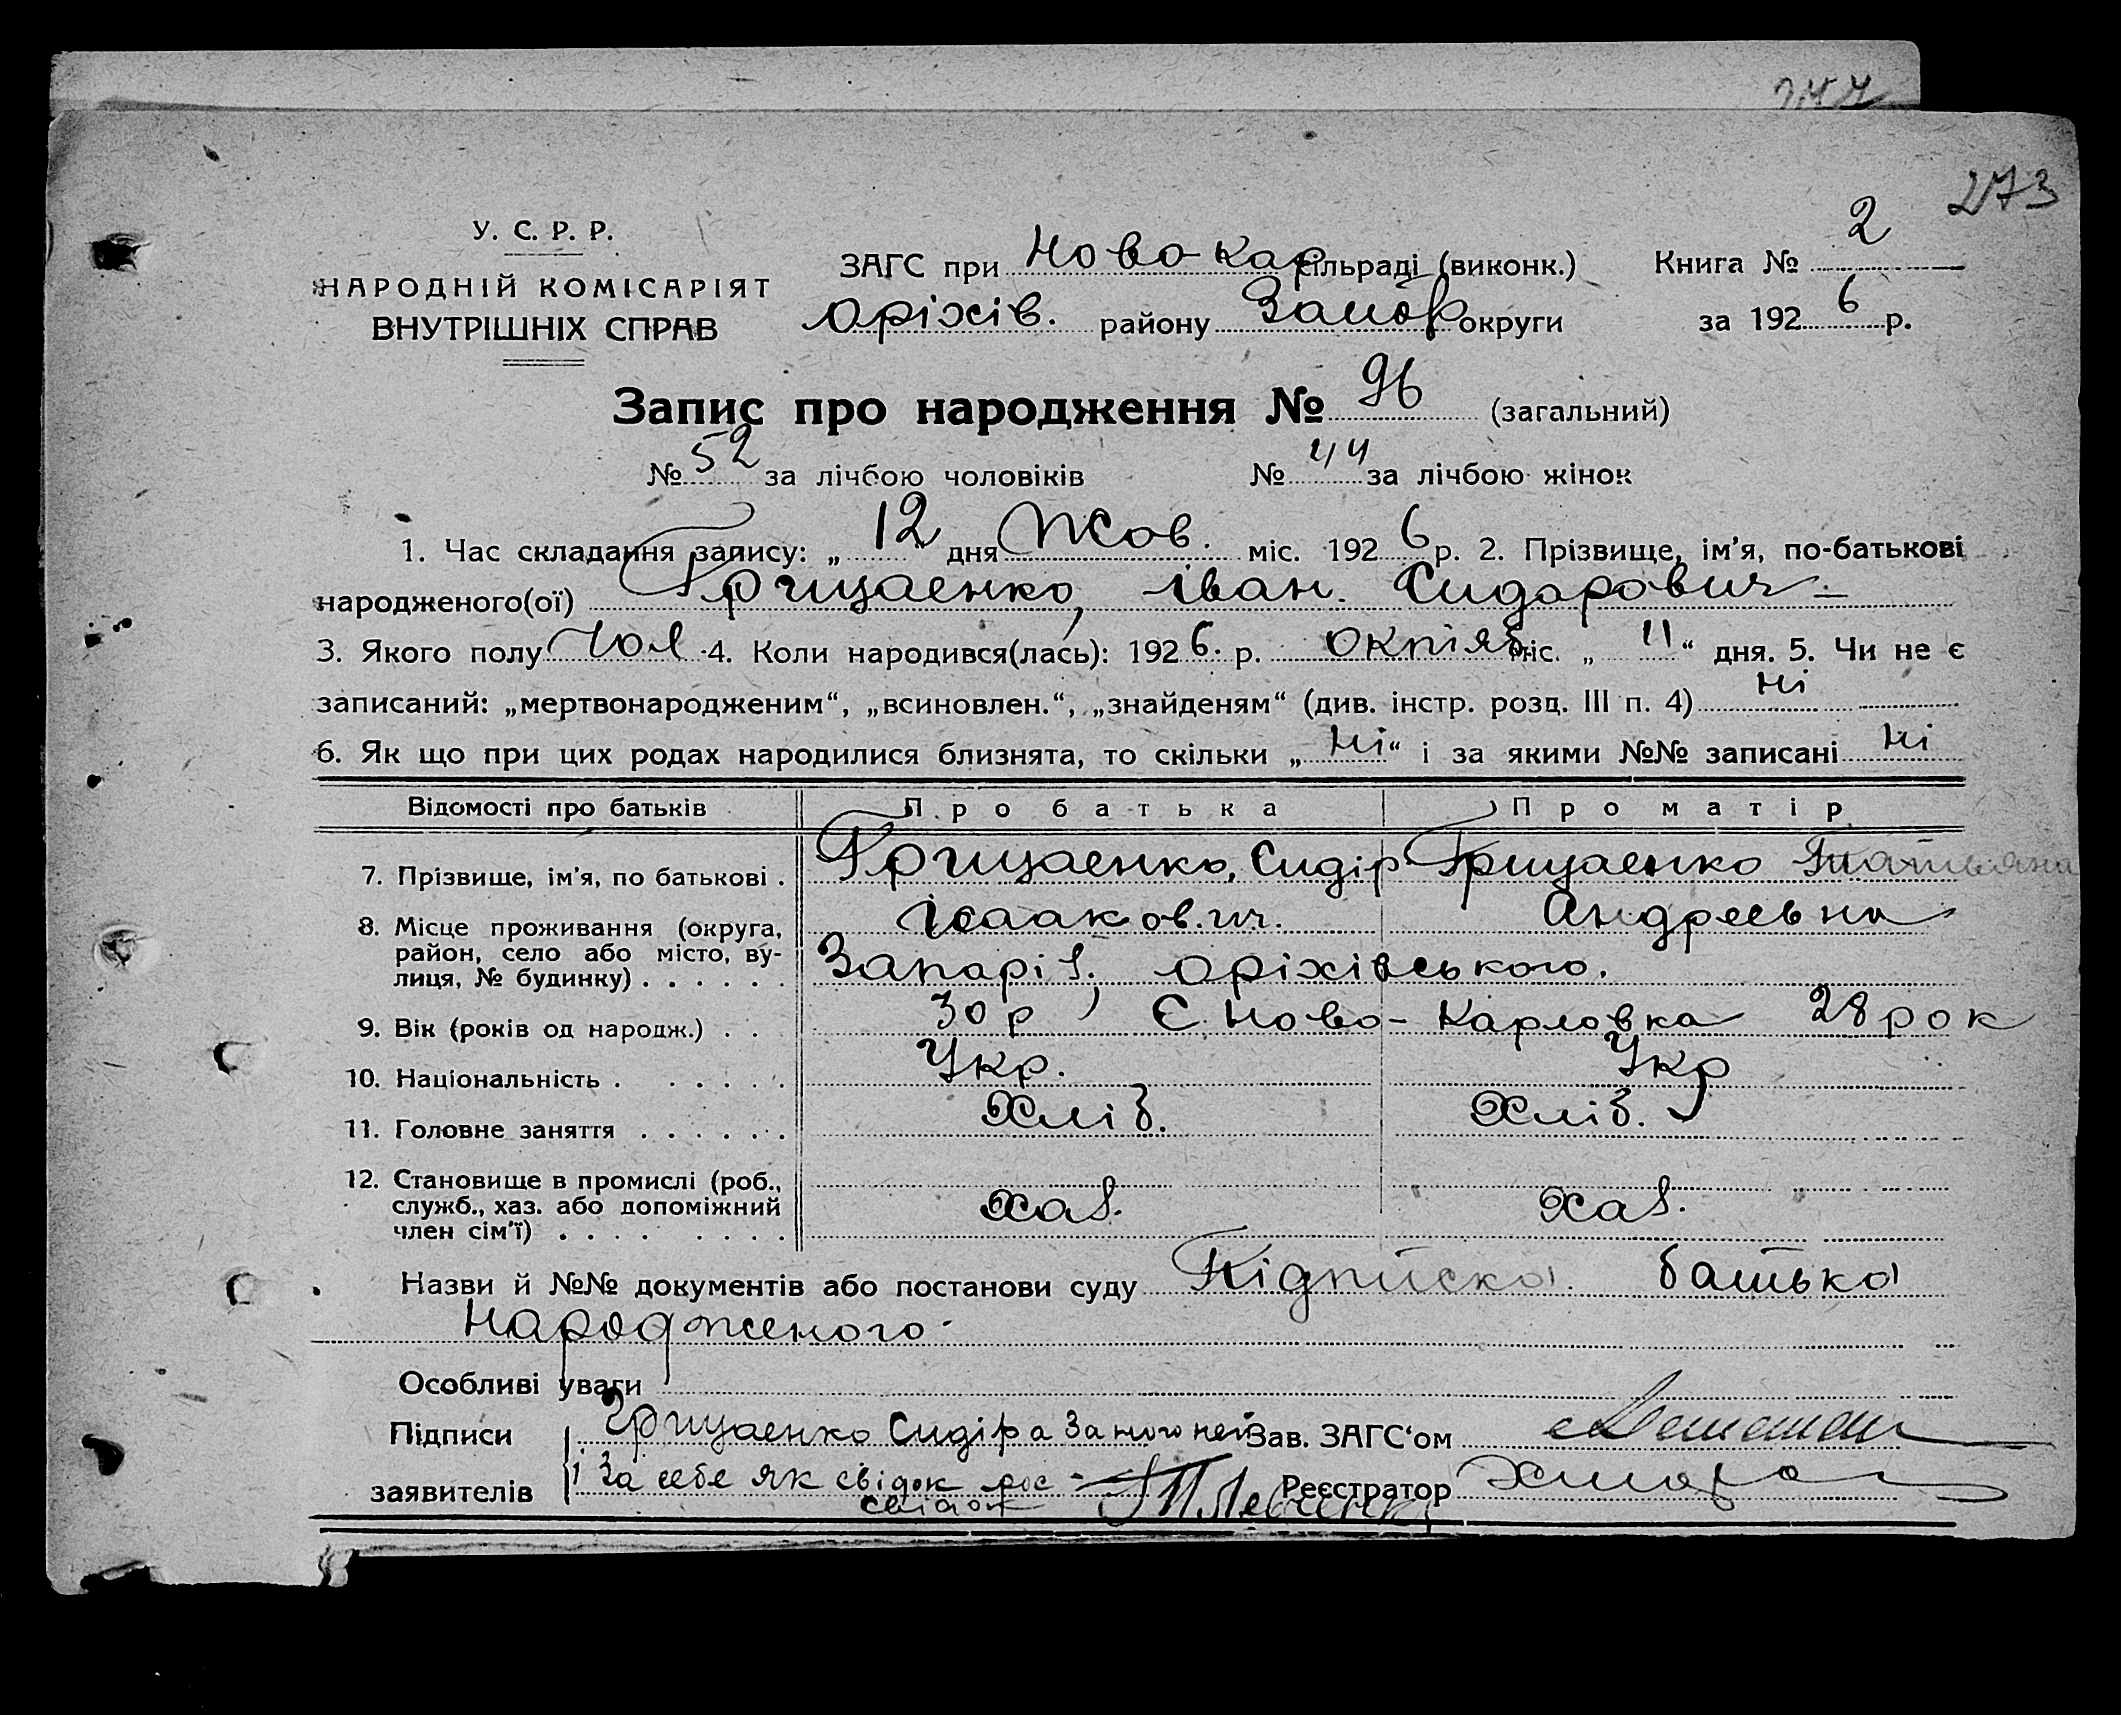 273
У. С. Р. Р.
НАРОДНІЙ КОМІСАРІЯТ
ВНУТРІШНІХ СПРАВ
ЗАГС при Ново-Кар сільраді (виконк.) Книга № 2
Оріхів. району Запор округи за 1926 р.
Запис про народження № 96 (загальний)
№ 52 за лічбою чоловіків № 44 за лічбою жінок
1. Час складання запису: „12“ дня Жов. міс. 1926 р. 2. Прізвище, ім’я, по-батькові
народженого(ої) Грицаенко, Іван. Сидорович
3. Якого полу Чол 4. Коли народився(лась): 1926. р. октіяб міс. „11“ дня. 5. Чи не є
записаний: „мертвонародженим“, „всиновлен.“, „знайденям“ (див. інстр. розд. III п. 4) ні
6. Як що при цих родах народилися близнята, то скільки „ні“ і за якими №№ записані ні
Відомості про батьків Про батька Про матір
7. Прізвище, ім’я, по батькові . Грицаенко, Сидір Грицаенко Татьяна
Ісаакович. Андреевна
8. Місце проживання (округа,
район, село або місто, ву-
лиця, № будинку) . . . . . . Запоріз. оріхівського.
9. Вік (років од народж.) . . 30 р Є. Ново-Карловка 28 рок
10. Національність . . . . . . Укр. Укр
11. Головне заняття . . . . . . Хліб. Хліб.
12. Становище в промислі (роб.,
служб., хаз. або допоміжний
член сім’ї) . . . . . . . . хаз. хаз.
Назви й №№ документів або постанови суду Підписка батька
народженого.
Особливі уваги
Підписи Грицаенко Сидіра За його не Зав. ЗАГС‘ом
заявителів і За себе як свідок рос Реєстратор
свідок